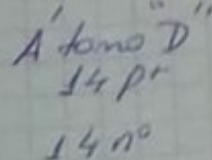 Átomo "D"
14 p⁺
14 n°